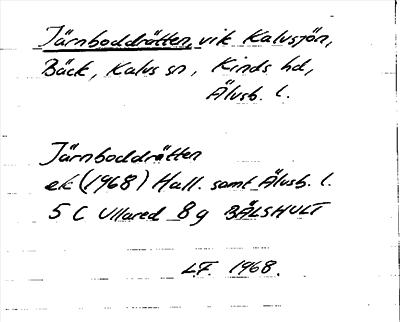 Järnboddrätten, vik Kalvsjön,
Bäck, Kalvs sn, Kinds hd,
Älvsb. l.
Järnboddrätten
ek (1968) Hall. samt Älvsb. l.
5 C Ullared 8 g BÄLSHULT
L.F. 1968.